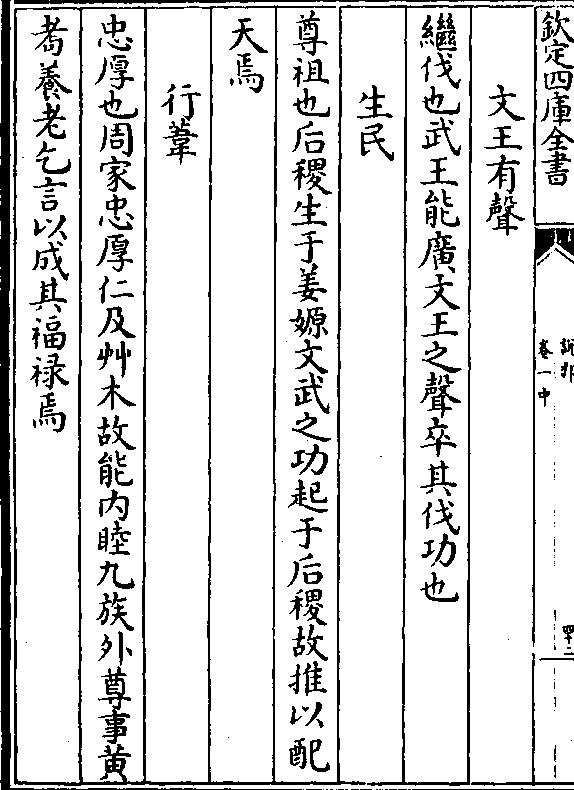 欽定四庫全書
說郛
卷一中
四二
文王有聲
繼伐也武王能廣文王之聲卒其伐功也
生民
尊祖也后稷生于姜嫄文武之功起于后稷故推以配
天焉
行葦
忠厚也周家忠厚仁及艸木故能内睦九族外尊事黄
耉養老乞言以成其福禄焉